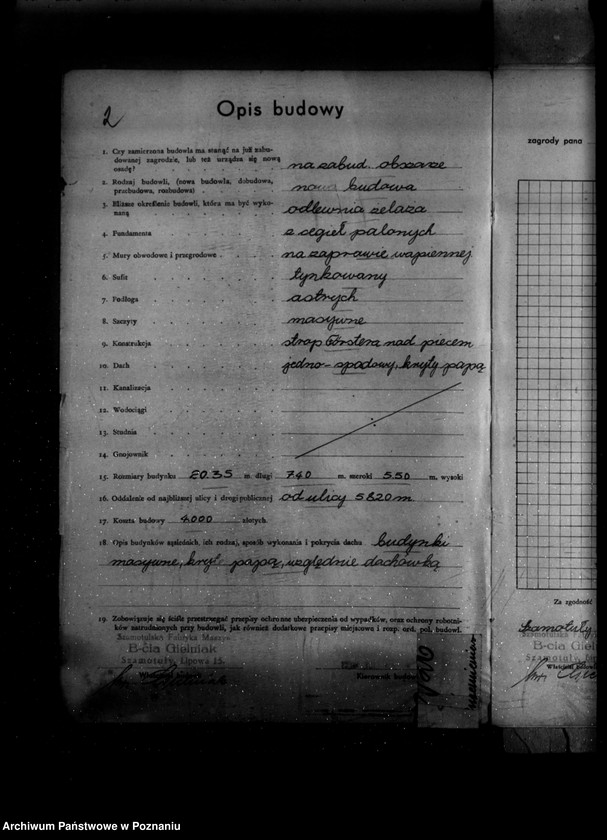 2
Opis budowy
1. Czy zamierzona budowla ma stanąć na już zabu-
dowanej zagrodzie, lub też urządza się nową
osadę? na zabud. obszarze
2. Rodzaj budowli, (nowa budowla, dobudowa,
przebudowa, rozbudowa) nowa budowa
3. Bliższe określenie budowli, która ma być wyko-
naną odlewnia żelaza
4. Fundamenta z cegieł palonych
5. Mury obwodowe i przegrodowe na zaprawie wapiennej
6. Sufit tynkowany
7. Podłoga astrych
8. Szczyty masywne
9. Konstrukcja strop Förstera nad piecem
10. Dach jedno-spadowy, kryty papą
11. Kanalizacja
12. Wodociągi
13. Studnia
14. Gnojownik
15. Rozmiary budynku 20.35 m długi 7.40 m. szeroki 5.50 m. wysoki
16. Oddalenie od najbliższej ulicy i drogi publicznej od ulicy 58.20 m
17. Koszta budowy 4.000 złotych
18. Opis budynków sąsiednich, ich rodzaj, sposób wykonania i pokrycia dachu budynki
masywne, kryte papą, względnie dachówką
19. Zobowiązuje się ściśle przestrzegać przepisy ochronne ubezpieczenia od wypadków, oraz ochrony robotni-
ków zatrudnionych przy budowli, jak również dodatkowe przepisy miejscowe i rozp. ord. pol. budowl.
Szamotulska Fabryka Maszyn
B-cia Gielniak
Szamotuły, Lipowa 15.
Kierownik budowy
zagrody pana
Za zgodność
Szamotuły
B-cia Gie
Szamotuły
Właściciel budowy
Archiwum Państwowe w Poznaniu